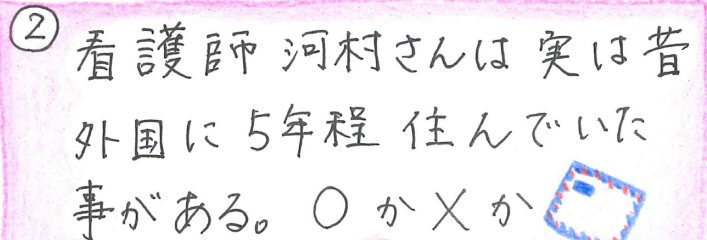 ② 看護師 河村さんは 実は昔
外国に 5年程 住んでいた
事がある。 ○ か × か